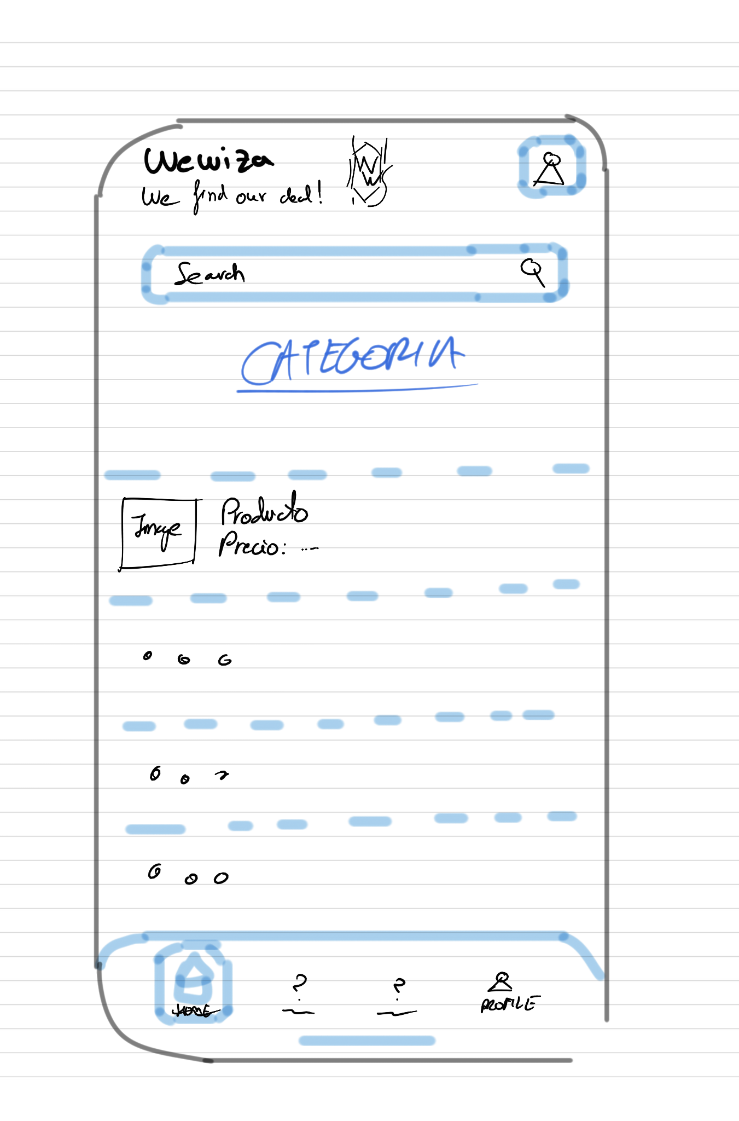 Wewiza
We find our deal!
W
W
Search
CATEGORIA
Image
Producto
Precio: ...
?
?
HOME
PROFILE